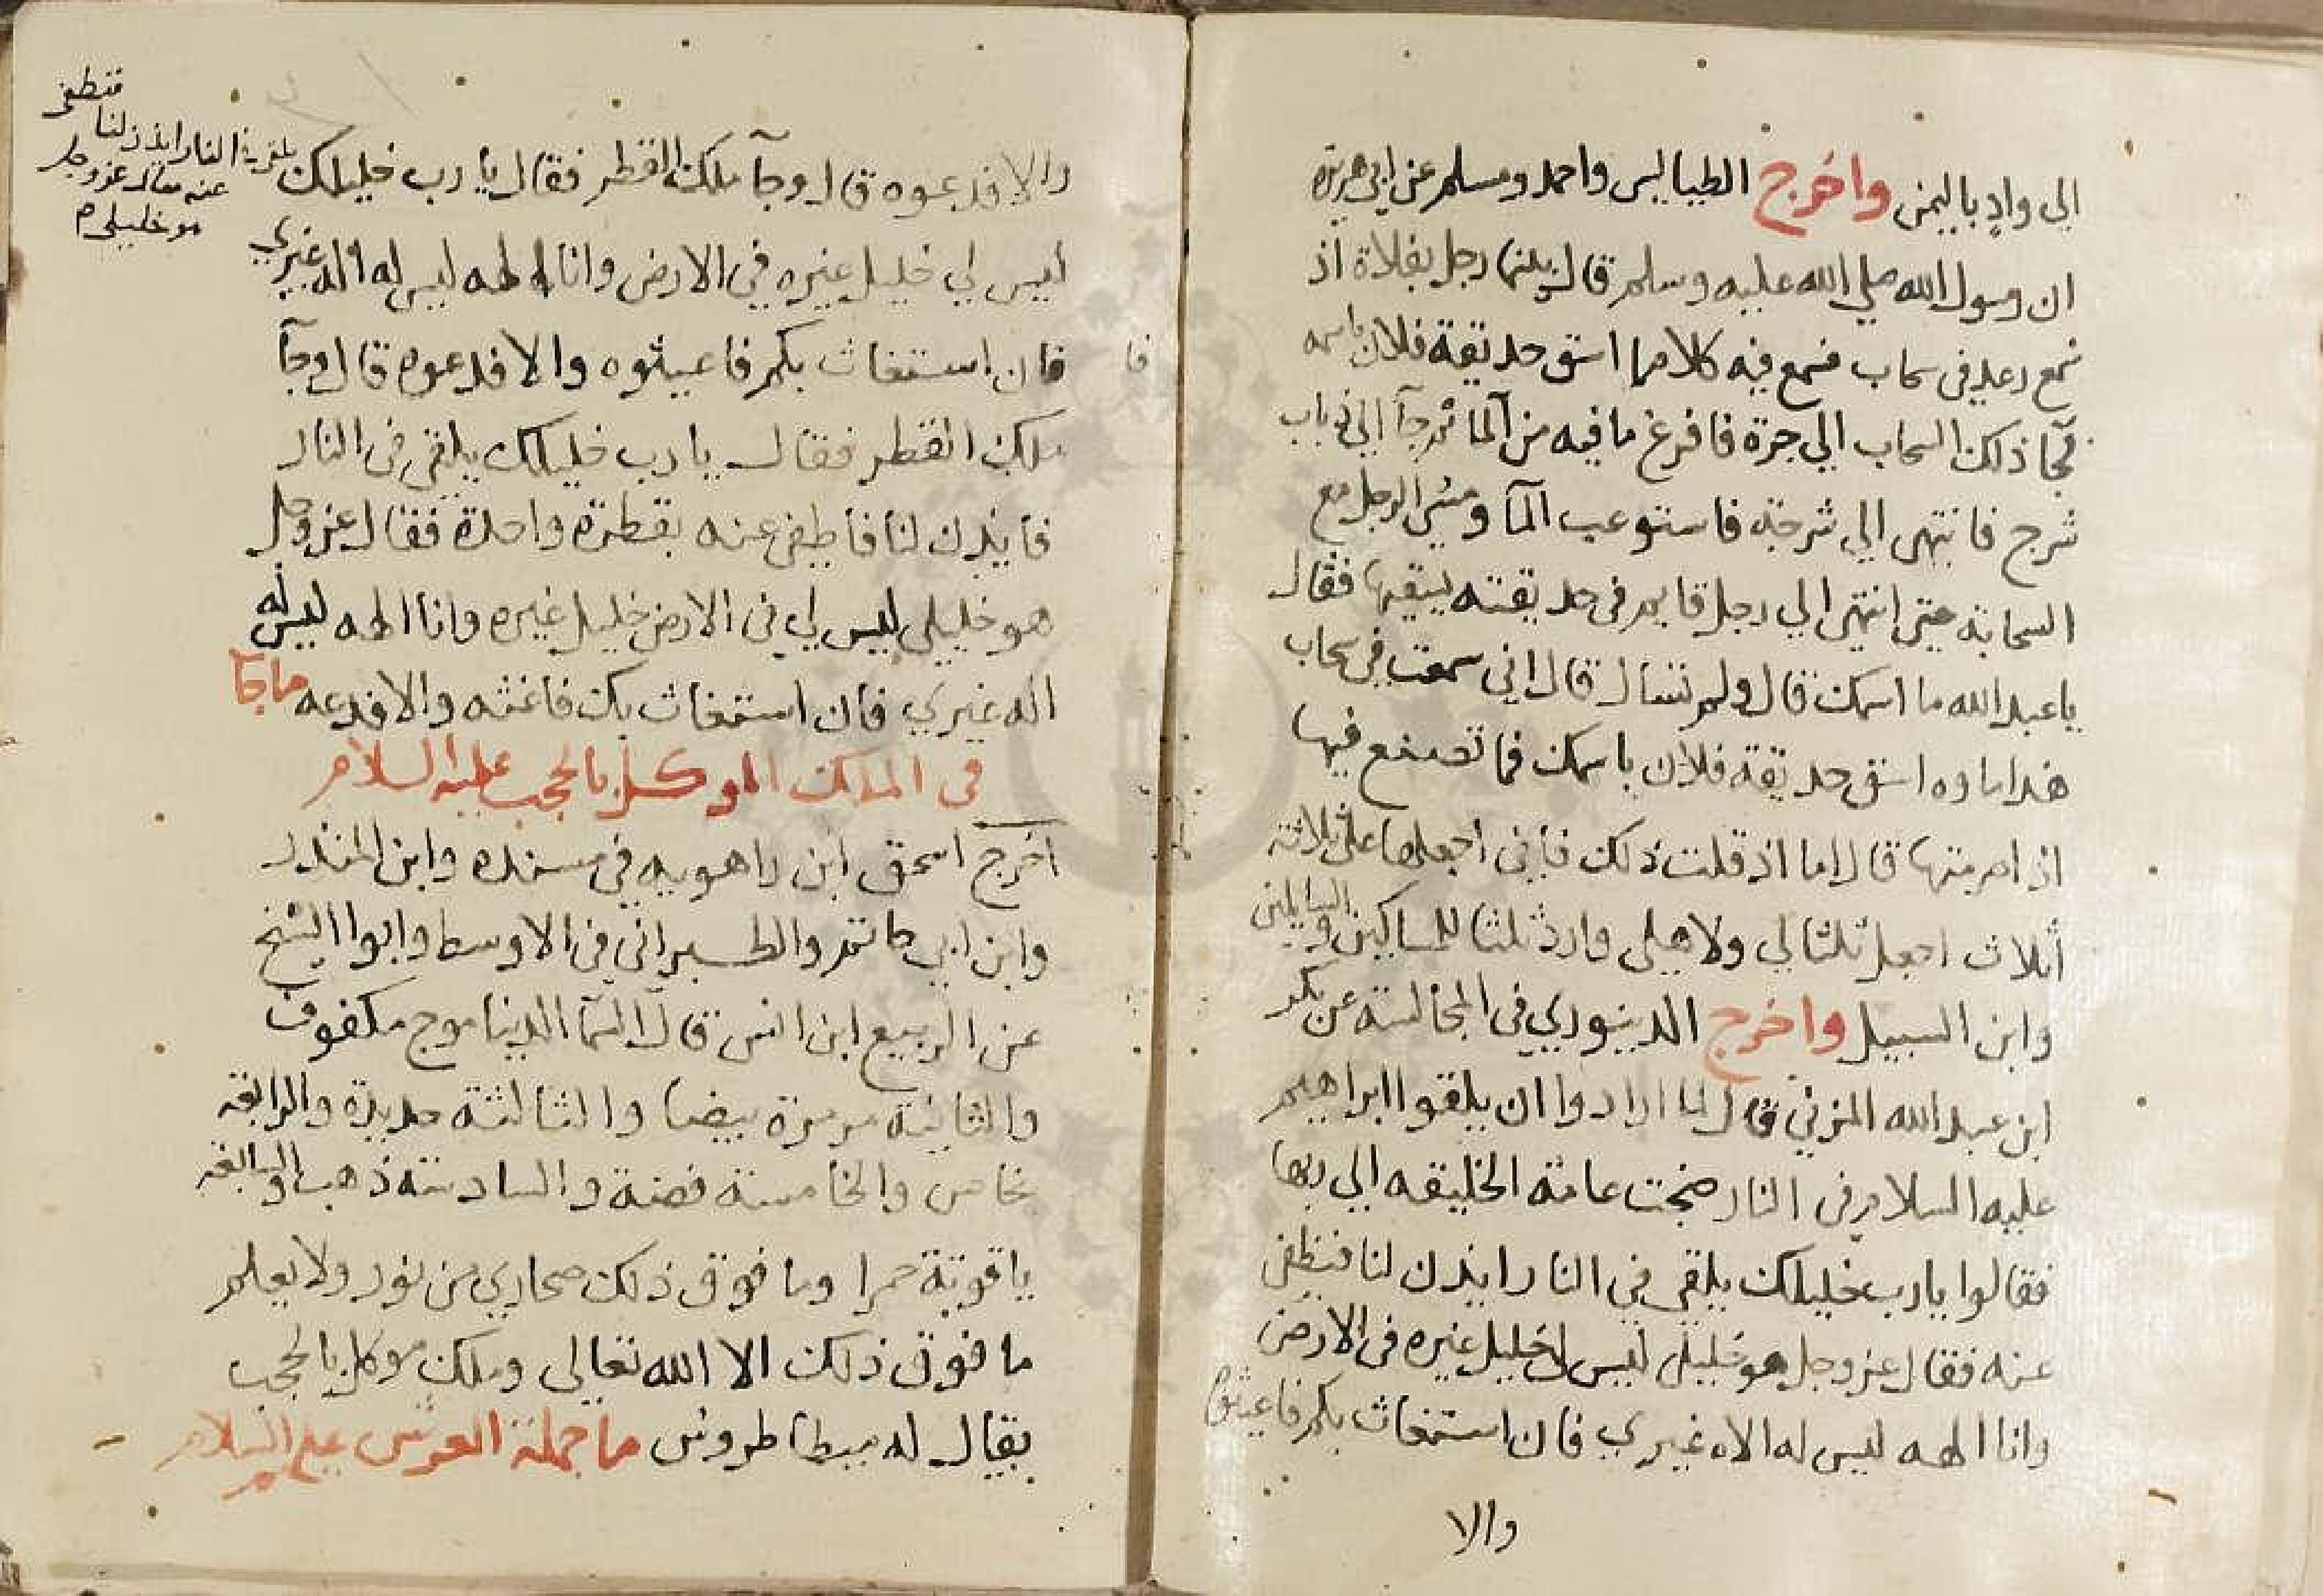 الي وادٍ باليمن واخرج الطيالسي واحمد ومسلم عن ابي هريرة
ان رسول الله صلي الله عليه وسلم قال بينما رجل بفلاة اذ
سمع رعد في سحاب فسمع فيه كلاما اسق حديقة فلان باسمه
فجا ذلك السحاب الي حرة فافرغ ما فيه من المآ ثم جآ الي ذباب
شرج فانتهي الي شرجة فاستوعب المآ ومشي الرجل مع
السحابة حتي انتهي الي رجل قايم في حديقته يسقيها فقال
يا عبد الله ما اسمك قال ولم تسأل قال اني سمعت في سحاب
هذا ماوه اسق حديقة فلان باسمك فما تصنع فيها
اذ اصرمتها قال اما اذ قلت ذلك فاني اجعلها علي ثلاثة
أثلاث اجعل ثلثا لي ولاهلي وارد ثلثا للمساكين والسايلين
وابن السبيل واخرج الدينوري في المجالسة عن بكر
ابن عبد الله المزني قال لما ارادوا ان يلقوا ابراهيم
عليه السلام في النار ضجت عامة الخليقه الي ربها
فقالوا يا رب خليلك يلقي في النار ايذن لنا فنطفي
عنه فقال عز وجل هو خليلي ليس لي خليل غيره في الارض
وانا الهه ليس له الاه غيري فان استغاث بكم فاغيثوه
والا
والا فدعوه قال وجآ ملك القطر فقال يا رب خليلك
يلقي في النار ايذن لنا
فنطفي
عنه فقال عز وجل
هو خليلي
ليس لي خليل غيره في الارض وانا الهه ليس له اله غيري
فا
فان استغاث بكم فاغيثوه والا فدعوه قال وجآ
ملك القطر فقال يا رب خليلك يلقي في النار
فايذن لنا فاطفي عنه بقطرة واحدة فقال عز وجل
هو خليلي ليس لي في الارض خليل غيره وانا الهه ليس له
اله غيري فان استغاث بك فاغثه والا فدعه ماجآ
في الملك الموكل بالحجب عليه السلام
اخرج اسحق ابن راهويه في مسنده وابن المنذر
وابن ابي حاتم والطبراني في الاوسط وابوا الشيخ
عن الربيع ابن انس قال السمآ الدنيا موج مكفوف
والثانية مرمرة بيضا والثالثة حديدة والرابعة
نحاس والخامسة فضة والسادسة ذهب والسابعة
ياقوتة حمرا وما فوق ذلك صحاري من نور ولا يعلم
ما فوق ذلك الا الله تعالي وملك موكل بالحجب
يقال له ميطاطروش ما حملة العرش عليهم السلام